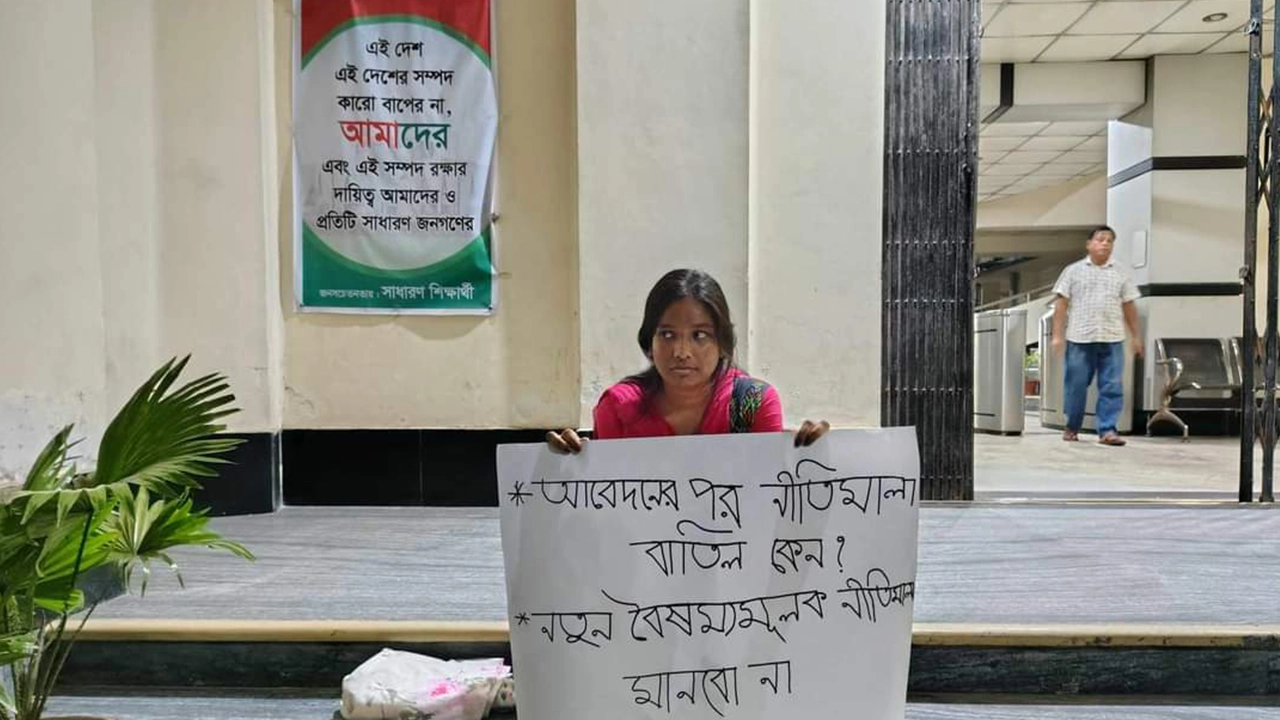 এই দেশ
এই দেশের সম্পদ
কারো বাপের না,
আমাদের
এবং এই সম্পদ রক্ষার
দায়িত্ব আমাদের ও
প্রতিটি সাধারণ জনগণের
জনসচেতনতায় : সাধারণ শিক্ষার্থী
* আবেদনের পর নীতিমালা
বাতিল কেন?
* নতুন বৈষম্যমূলক নীতিমালা
মানবো না